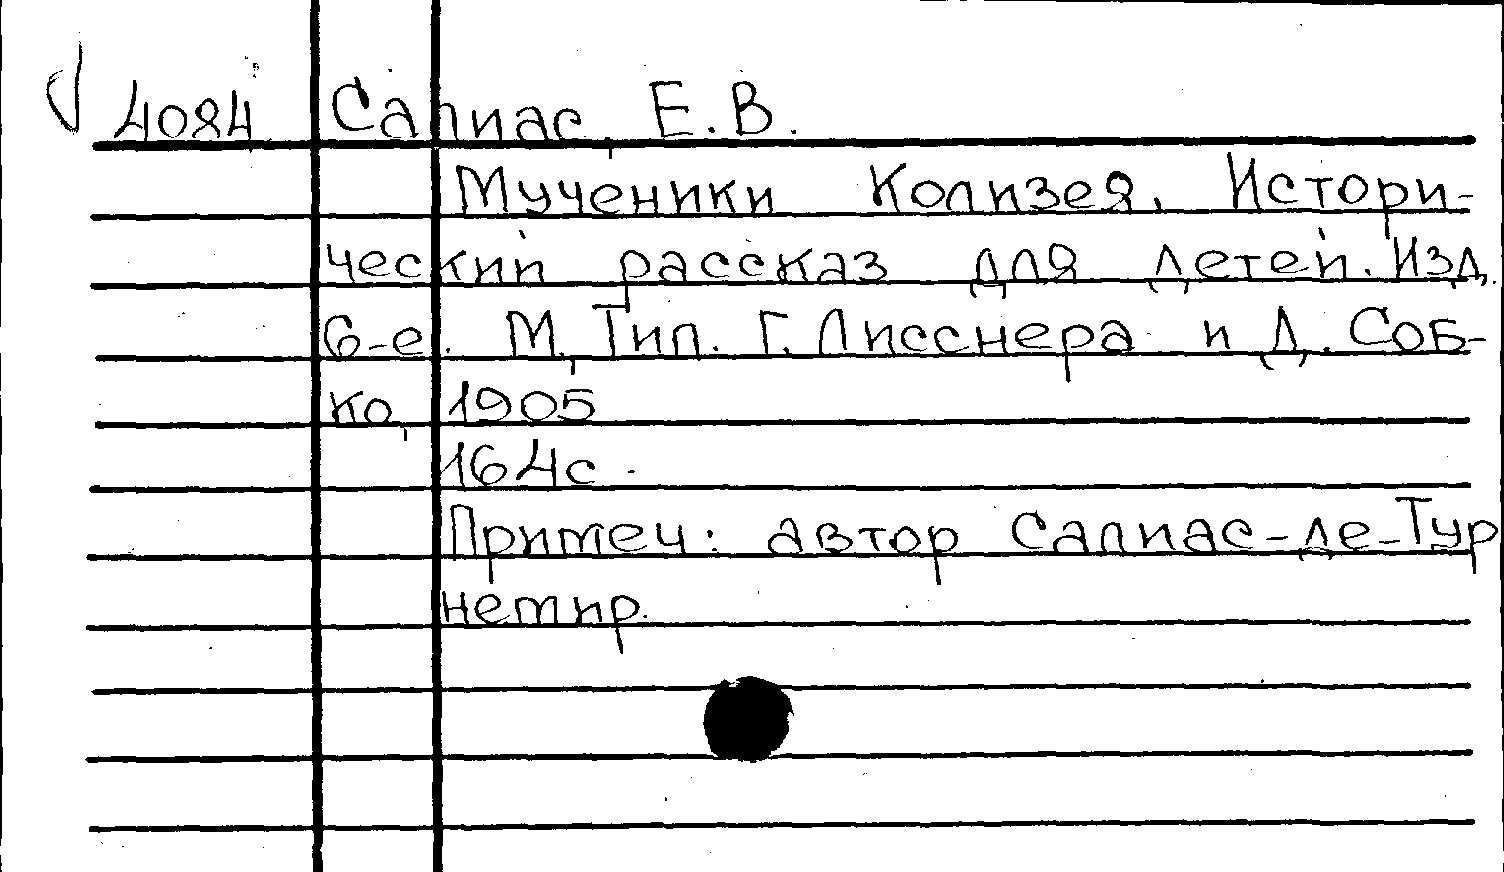 4084 Салиас, Е.В.
Мученики Колизея. Истори-
ческий рассказ для детей. Изд.
6-е. М, Тип. Г. Лисснера и Д. Соб-
ко, 1905
164с.
Примеч: автор Салиас-де-Тур
немир.